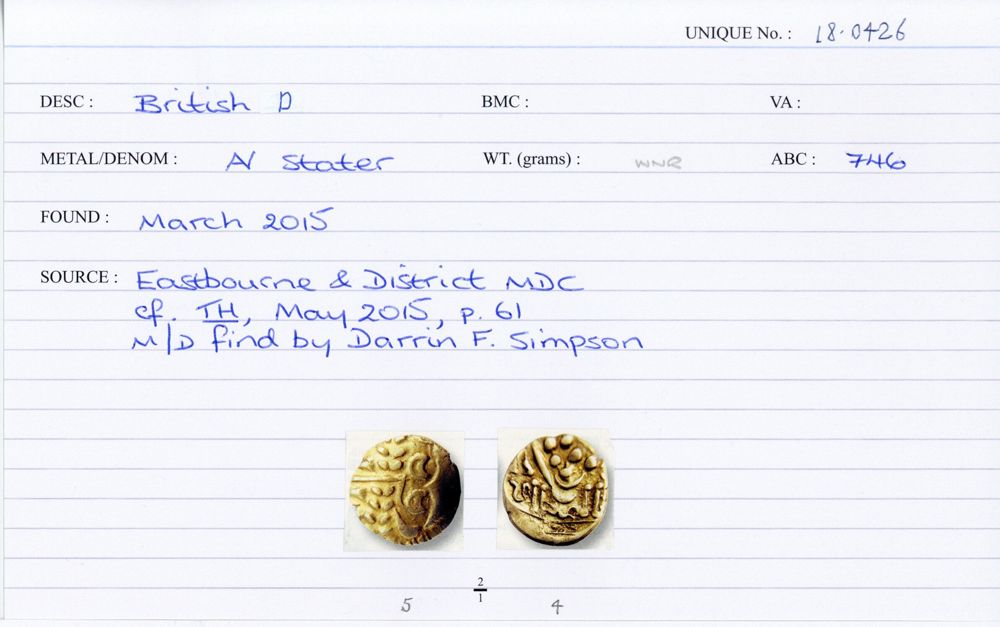 UNIQUE No. : 18.0426
DESC : British D BMC : VA :
METAL/DENOM : AV Stater WT. (grams) : WNR ABC : 746
FOUND : March 2015
SOURCE : Eastbourne & District MDC
cf. TH, May 2015, p. 61
M/D find by Darrin F. Simpson
2
1
5 4